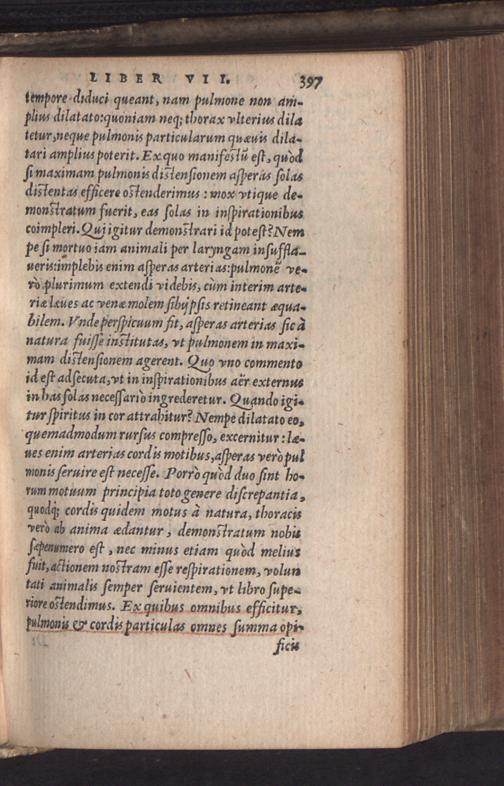 LIBER VII. 397
tempore diduci queant, nam pulmone non am-
plius dilatato: quoniam neq; thorax vlterius dila
tetur, neque pulmonis particularum quæuis dila-
tari amplius poterit. Ex quo manifestũ est, quòd
si maximam pulmonis distensionem asperas solas
distentas efficere ostenderimus: mox vtique de-
monstratum fuerit, eas solas in inspirationibus
coimpleri. Qui igitur demonstrari id potest? Nem
pe si mortuo iam animali per laryngam insuffla-
ueris: implebis enim asperas arterias: pulmonẽ ve-
rò plurimum extendi videbis, cùm interim arte-
riæ læues ac venæ molem sibijpsis retineant æqua-
bilem. Vnde perspicuum fit, asperas arterias sic à
natura fuisse institutas, vt pulmonem in maxi-
mam distensionem agerent. Quo vno commento
id est adsecuta, vt in inspirationibus aër externus
in has solas necessario ingrederetur. Quando igi-
tur spiritus in cor attrahitur? Nempe dilatato eo,
quemadmodum rursus compresso, excernitur: læ-
ues enim arterias cordis motibus, asperas verò pul
monis seruire est necesse. Porrò quòd duo sint ho-
rum motuum principia toto genere discrepantia,
quodq; cordis quidem motus à natura, thoracis
verò ab anima ædantur, demonstratum nobis
sæpenumero est, nec minus etiam quòd melius
fuit, actionem nostram esse respirationem, volun
tati animalis semper seruientem, vt libro supe-
riore ostendimus. Ex quibus omnibus efficitur,
pulmonis & cordis particulas omnes summa opi-
ficis